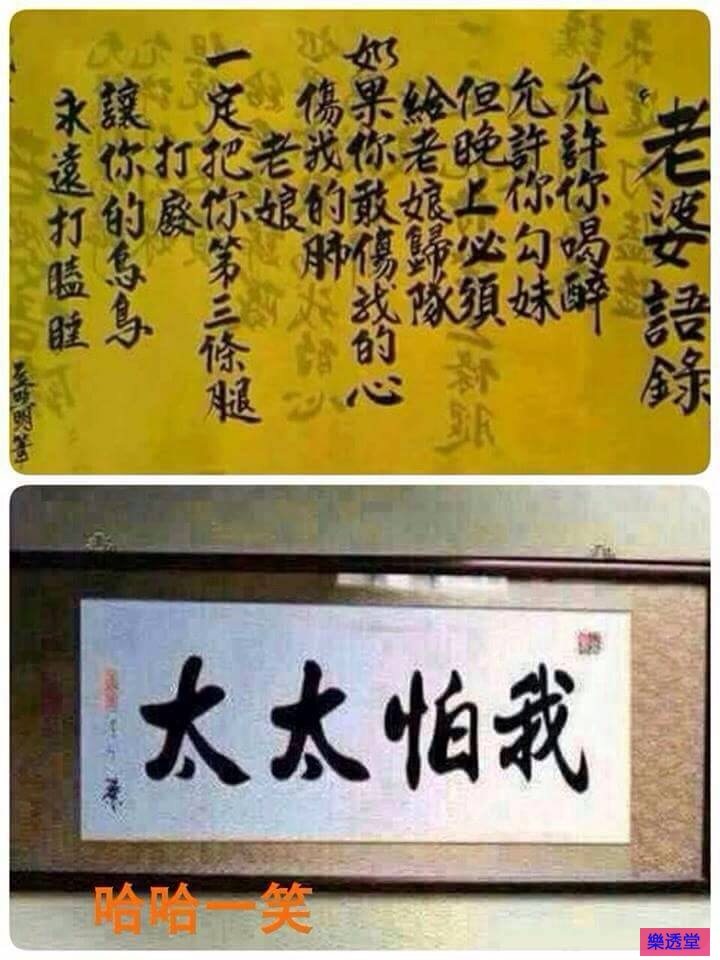 老婆語錄
允許你喝醉
允許你勾妹
但晚上必須
給老娘歸隊
如果你敢傷我的心
傷我的肺
老娘
一定把你第三條腿
打廢
讓你的鳥鳥
永遠打瞌睡
我怕太太
哈哈一笑
樂透堂